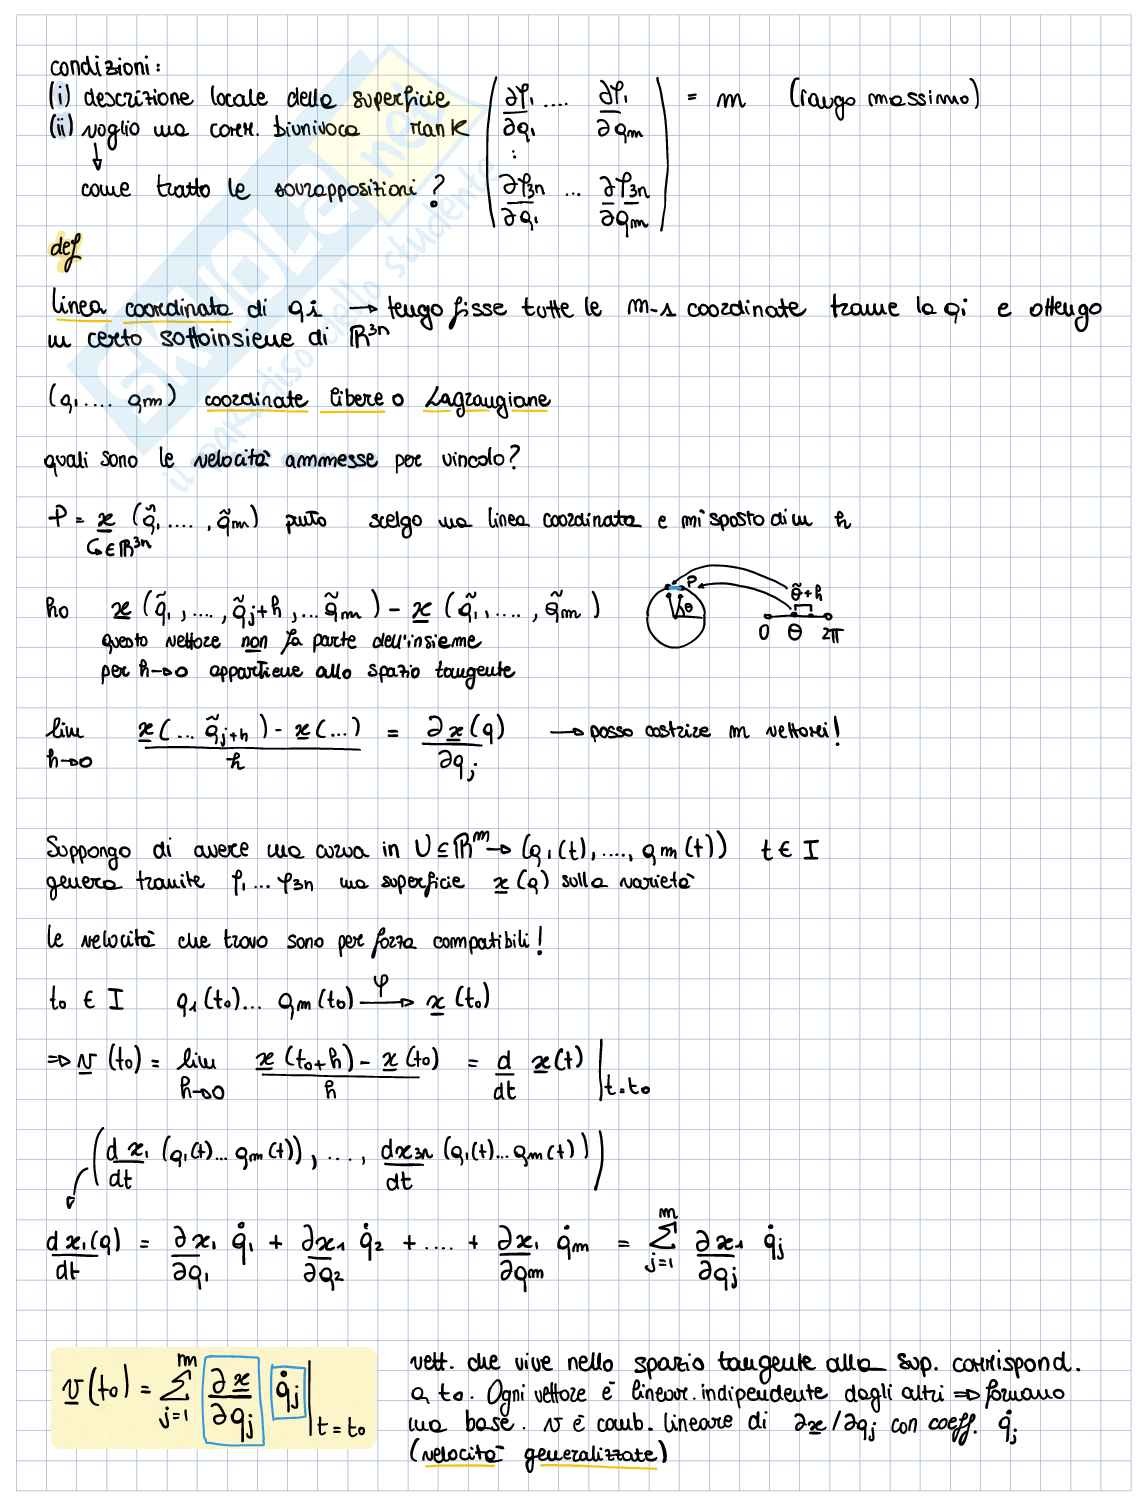 condizioni:
(i) descrizione locale della superficie
(ii) voglio una corr. biunivoca rank ( ∂φ₁/∂q₁ .... ∂φ₁/∂qm : ∂φ3n/∂q₁ ... ∂φ3n/∂qm ) = m (rango massimo)
come tratto le sovrapposizioni?
def
linea coordinata di qi → tengo fisse tutte le m-1 coordinate tranne la qi e ottengo
un certo sottoinsieme di ℝ³ⁿ
(q₁.... qm) coordinate libere o Lagrangiane
quali sono le velocità ammesse per vincolo?
P = x (q̃₁,....,q̃m) punto scelgo una linea coordinata e mi sposto di un h
↳ ∈ ℝ³ⁿ
ho x (q̃₁,....,q̃j+h,...q̃m) - x (q̃₁,....,q̃m)
P θ θ̃+h 0 θ 2π
questo vettore non fa parte dell'insieme
per h→0 appartiene allo spazio tangente
lim h→0 x(... q̃j+h) - x(...) / h = ∂x(q)/∂qj → posso costrire m vettori!
Suppongo di avere una curva in U⊆ℝᵐ → (q₁(t),....,qm(t)) t ∈ I
genera tramite φ₁...φ3n una superficie x(q) sulla varietà
le velocità che trovo sono per forza compatibili!
t₀ ∈ I q₁(t₀)... qm(t₀) —φ→ x(t₀)
⇒ v(t₀) = lim h→0 x(t₀+h) - x(t₀) / h = d/dt x(t) | t=t₀
( dx₁/dt (q₁(t)...qm(t)), ...., dx3n/dt (q₁(t)...qm(t)) )
dx₁(q)/dt = ∂x₁/∂q₁ q̇₁ + ∂x₁/∂q₂ q̇₂ + .... + ∂x₁/∂qm q̇m = Σ j=1 m ∂x₁/∂qj q̇j
v(t₀) = Σ j=1 m ∂x/∂qj q̇j | t=t₀
vett. che vive nello spazio tangente alla sup. corrispond.
a t₀. Ogni vettore è linear. indipendente dagli altri ⇒ formano
una base. v è comb. lineare di ∂x/∂qj con coeff. q̇j
(velocità generalizzate)
SKUOLA.net
il paradiso dello studente